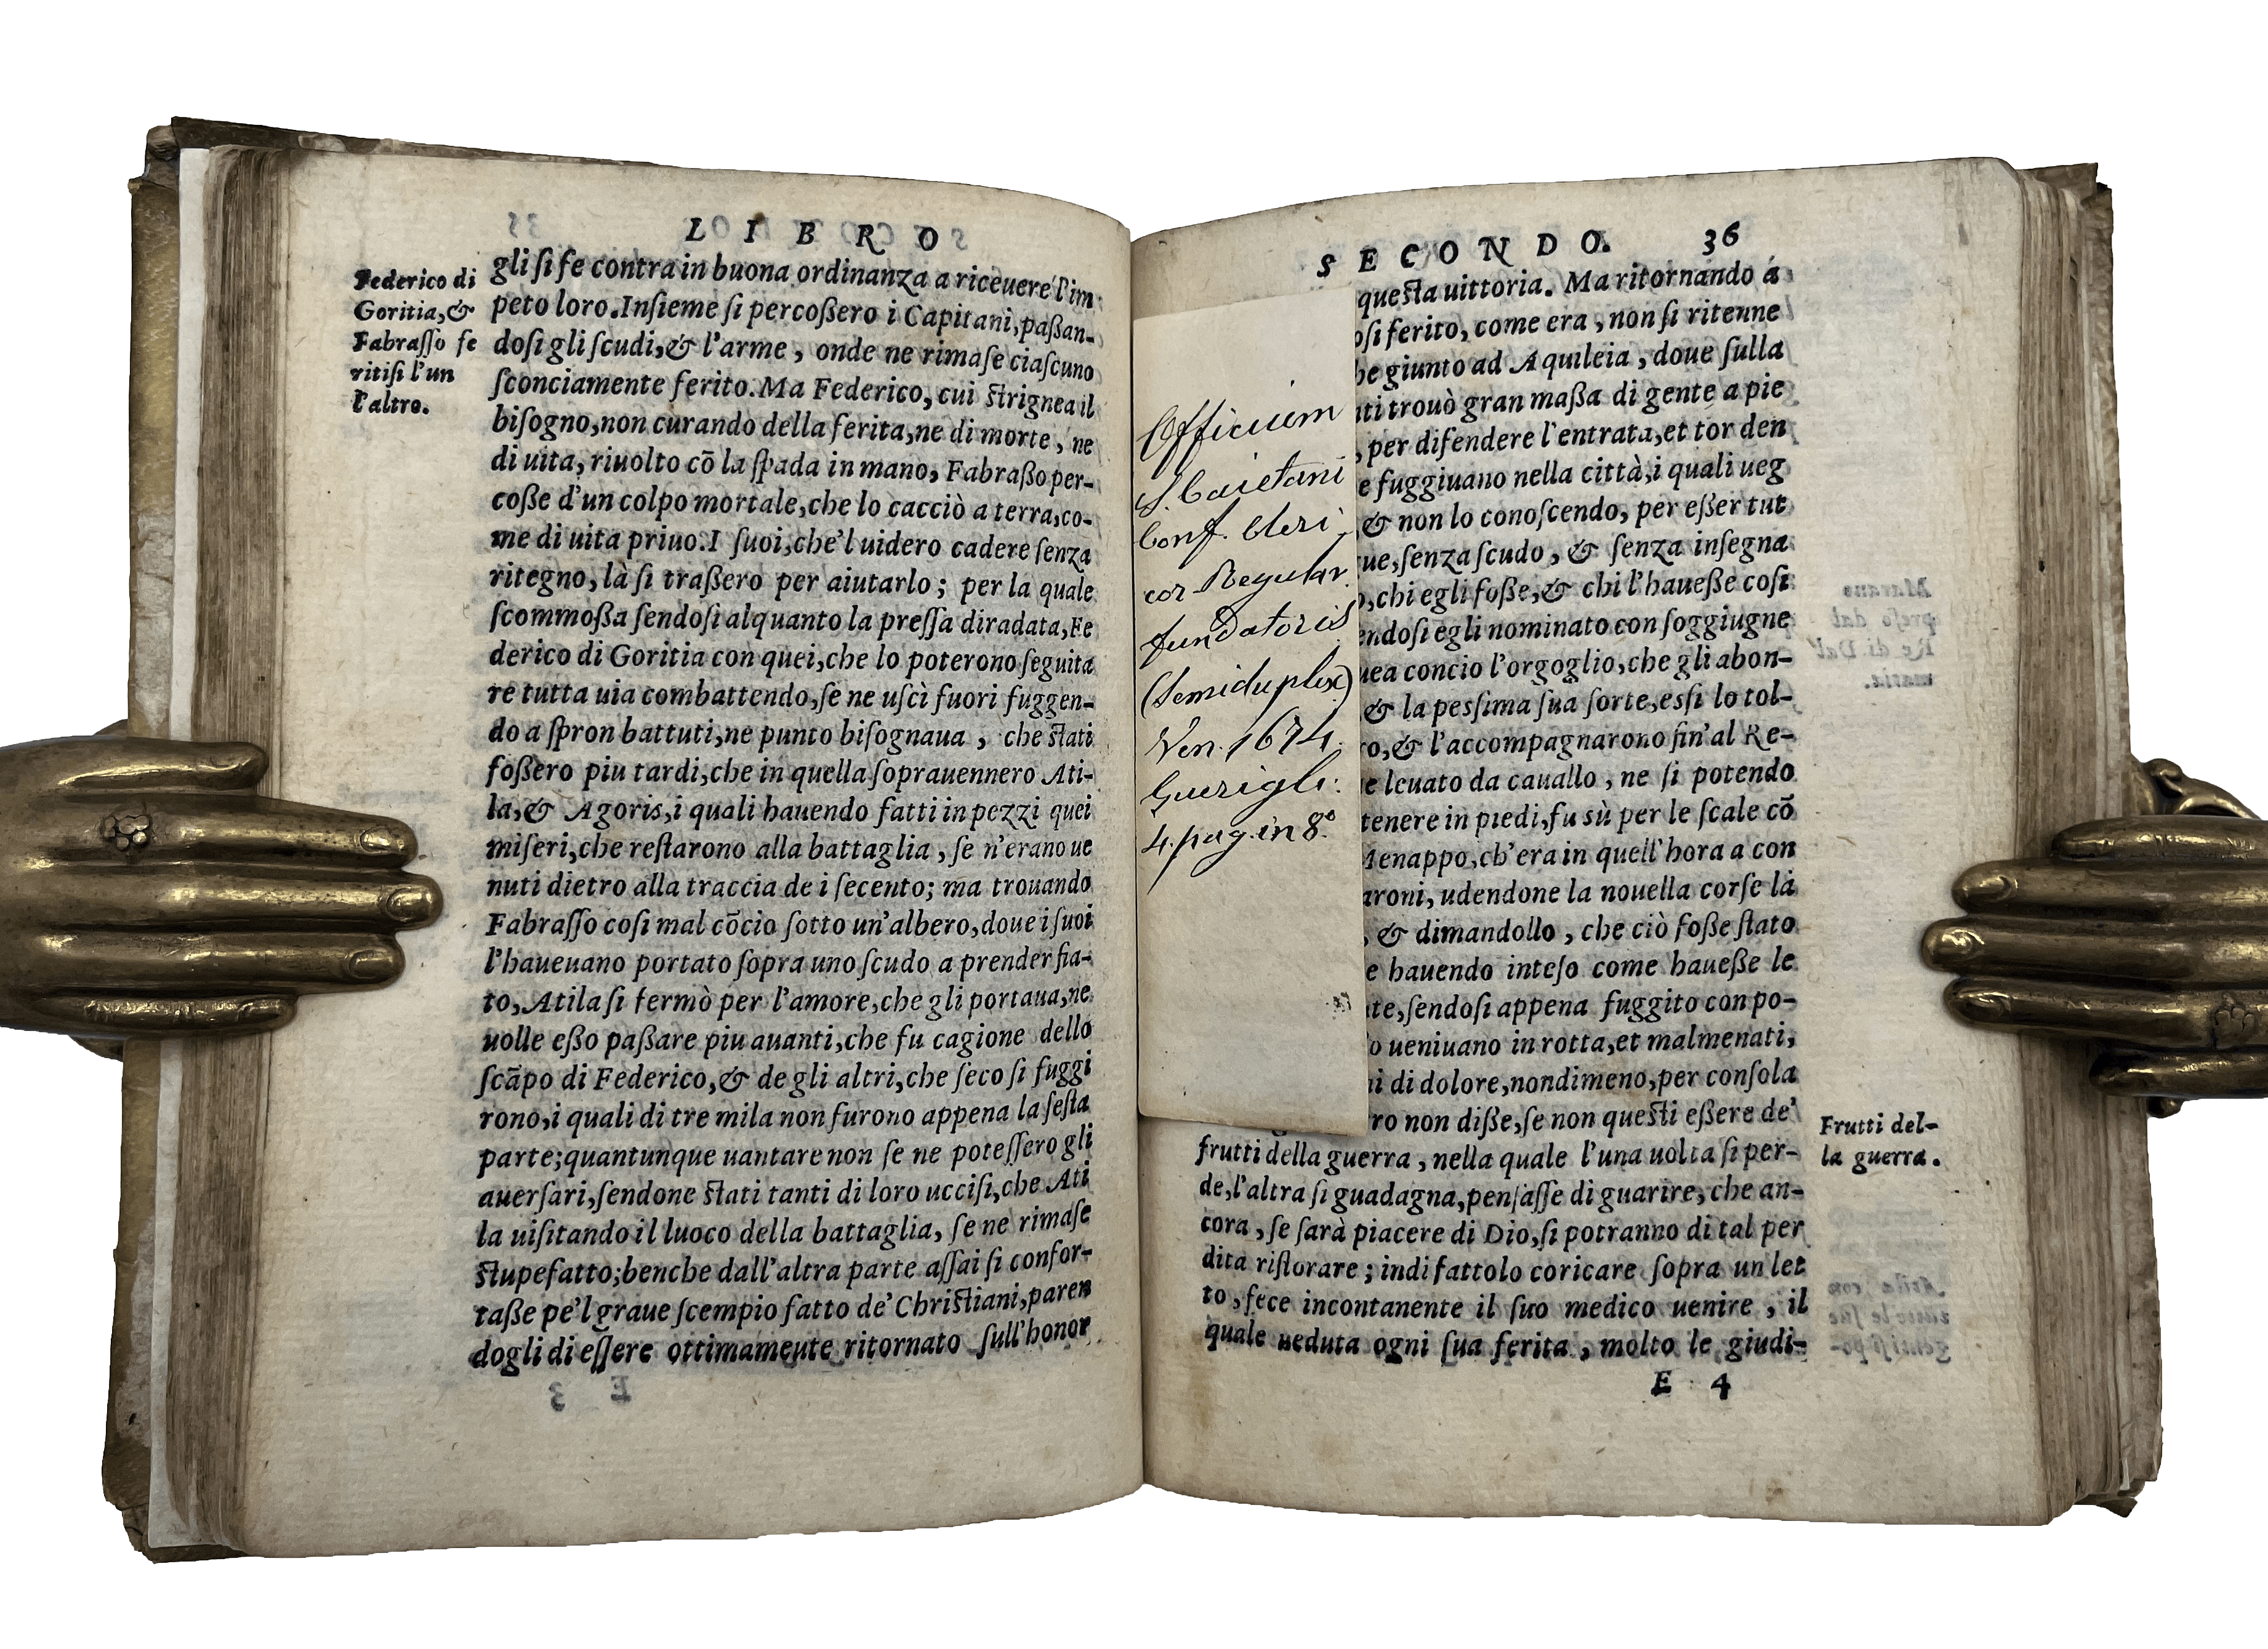 LIBRO
Federico di
Goritia, &
Fabraſſo fe
ritiſi l'un
l'altro.
gli ſi fe contra in buona ordinanza a riceuere l'im
peto loro. Inſieme ſi percoßero i Capitani, paßan-
doſi gli ſcudi, & l'arme, onde ne rimaſe ciaſcuno
ſconciamente ferito. Ma Federico, cui ſtrignea il
biſogno, non curando della ferita, ne di morte, ne
di uita, riuolto cō la ſpada in mano, Fabraßo per-
coße d'un colpo mortale, che lo cacciò a terra, co-
me di uita priuo. I ſuoi, che'l uidero cadere ſenza
ritegno, là ſi traßero per aiutarlo; per la quale
ſcommoßa ſendoſi alquanto la preſſa diradata, Fe
derico di Goritia con quei, che lo poterono ſeguita
re tutta uia combattendo, ſe ne uſcì fuori fuggen-
do a ſpron battuti, ne punto biſognaua, che ſtati
foßero piu tardi, che in quella ſoprauennero Ati-
la, & Agoris, i quali hauendo fatti in pezzi quei
miſeri, che reſtarono alla battaglia, ſe n'erano ue
nuti dietro alla traccia de i ſecento; ma trouando
Fabraſſo coſi mal cōcio ſotto un'albero, doue i ſuoi
l'haueuano portato ſopra uno ſcudo a prender fia-
to, Atila ſi fermò per l'amore, che gli portaua, ne
uolle eßo paßare piu auanti, che fu cagione dello
ſcāpo di Federico, & de gli altri, che ſeco ſi fuggi
rono, i quali di tre mila non furono appena la ſeſta
parte; quantunque uantare non ſe ne poteſſero gli
auerſari, ſendone ſtati tanti di loro ucciſi, che Ati
la uiſitando il luoco della battaglia, ſe ne rimaſe
ſtupefatto; benche dall'altra parte aſſai ſi confor-
taße pe'l graue ſcempio fatto de' Chriſtiani, paren
dogli di eſſere ottimamente ritornato ſull'honor
SECONDO. 36
Officium
S. Caietani
Conf. Cleri-
cor Regular.
fundatoris
(Semiduplex)
Ven. 1674.
Guerigli:
4. pag. in 8º.
queſta uittoria. Ma ritornando a
oſi ferito, come era, non ſi ritenne
he giunto ad Aquileia, doue ſulla
ti trouò gran maßa di gente a pie
, per difendere l'entrata, et tor den
e fuggiuano nella città, i quali ueg
, & non lo conoſcendo, per eßer tut
ue, ſenza ſcudo, & ſenza inſegna
o, chi egli foße, & chi l'haueße coſi
endoſi egli nominato con ſoggiugne
uea concio l'orgoglio, che gli abon-
& la peſſima ſua ſorte, eſſi lo tol-
ro, & l'accompagnarono fin'al Re-
e leuato da cauallo, ne ſi potendo
tenere in piedi, fu sù per le ſcale cō
Menappo, ch'era in quell'hora a con
aroni, udendone la nouella corſe là
, & dimandollo, che ciò foße ſtato
e hauendo inteſo come haueße le
te, ſendoſi appena fuggito con po-
o ueniuano in rotta, et malmenati,
i di dolore, nondimeno, per conſola
ro non diße, ſe non queſti eßere de'
frutti della guerra, nella quale l'una uolta ſi per-
de, l'altra ſi guadagna, penſaſſe di guarire, che an-
cora, ſe ſarà piacere di Dio, ſi potranno di tal per
dita riſtorare; indi fattolo coricare ſopra un let
to, fece incontanente il ſuo medico uenire, il
quale ueduta ogni ſua ferita, molto le giudi-
Frutti del-
la guerra.
E 4